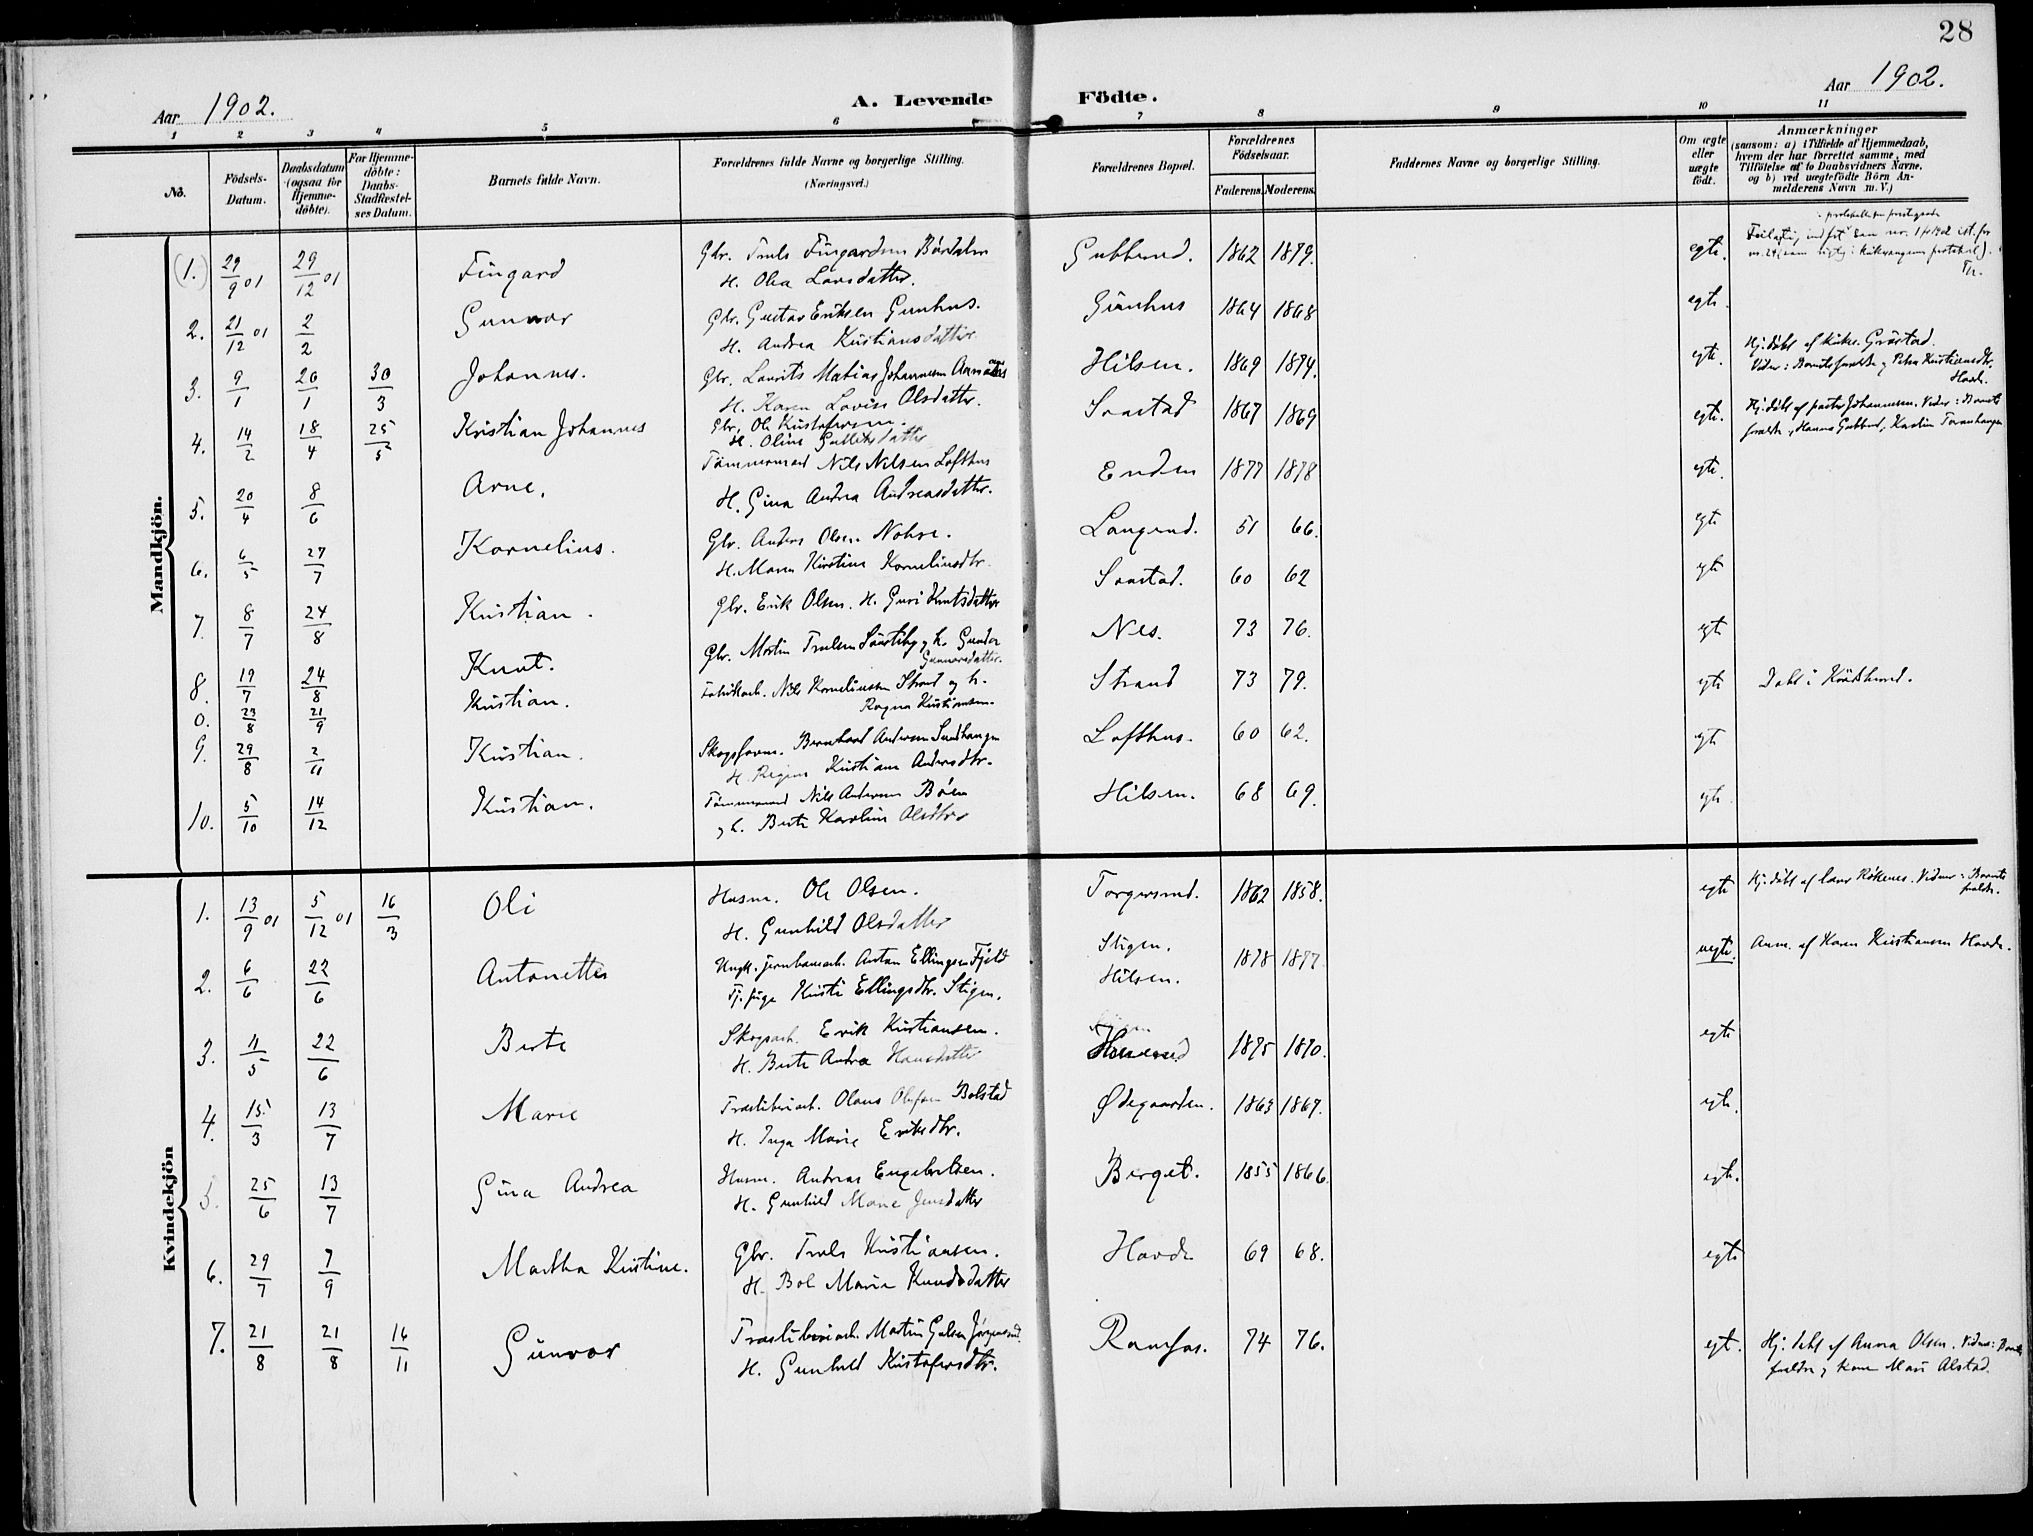 28
Aar 1902.
A. Levende Födte.
Aar 1902.
1 2 3 4 5 6 7 8 9 10 11
No.
Födsels-Datum.
Daabsdatum (ogsaa for Hjemme-döbte).
For Hjemme-döbte: Daabs-Stadfæstel-ses Datum.
Barnets fulde Navn.
Forældrenes fulde Navne og borgerlige Stilling. (Næringsvei.)
Forældrenes Bopæl.
Forældrenes Födselsaar.
Faderens. Moderens.
Faddernes Navne og borgerlige Stilling.
Om ægte eller uægte födt.
Anmærkninger (saasom: a) i Tilfælde af Hjemmedaab, hvem der har forrettet samme, med Tilföielse af to Daabsvidners Navne, og b) ved uægtefödte Börn An-melderens Navn m. V.)
Mandkjön.
(1.) 29/9 01 29/12 01 Fingard Gbr. Truls Fingardsen
H. Olea Larsdatter. Gubberud. 1862 1879. egte.
2. 21/12 01 2/2 Gunvar Gbr. Gustav Eriksen Gunhus.
H. Andrea Kristiansdatter Gunhus 1864 1868 egte.
3. 9/1 26/1 30/3 Johannes. Gbr. Laurits Matias Johannesen
H. Karen Lovise Olsdatter. Hilsen. 1869 1874. egte. Hj. döbt af Grøstad.
Vidner: Barnets foreldre og Petra Kristiansdtr.
Havde.
4. 14/2 18/4 25/5 Kristian Johannes Gbr. Ole Kristofersen.
H. Oline Gulliksdatter Saastad 1867 1869 egte. Hj. döbt af pastor Johannesen. Vidner: Barnets
foreldre, Hanna Gubberud,
5. 20/4 8/6 Arne. Tømmermand Nils Nilsen Lofthus
H. Gina Andrea Andreasdatter. Enden 1877 1878 egte.
6. 6/5 27/7 Kornelius. Gbr. Anders Olsen
H. Maren Kirstine Korneliusdtr. Langerud. 51 66. egte
7. 8/7 24/8 Kristian. Gbr. Erik Olsen. H. Guri Knutsdatter Saastad. 60 62 egte
8. 19/7 24/8 Knut. Gbr. Martin Trulsen og h. Gunda
Gunnarsdatter. Nes. 73 76. egte
0. 23/8 21/9 Kristian. Fabrikarb. Nils Korneliussen Strand og h.
Ragna Kristiansen. Strand 73 79. egte Döbt i Krødsherred.
9. 29/8 2/11 Kristian. Bernhard Andersen
H. Regine Kristiane Andersdtr. Lofthus. 60 62. egte
10. 5/10 14/12 Kristian. Tømmermand Nils Andersen Bøen
og h. Berte Karoline Olsdtr Hilsen. 68 69. egte.
Kvindekjön
1. 13/9 01 5/12 01 16/3 Oli Husm. Ole Olsen.
H. Gunhild Olsdatter Torgersrud. 1862 1858. egte Hj. döbt af Røkenes. Vidner: Barnets
foreldre.
2. 6/6 22/6 Antonette Ungk. jernbanearb. Anton Ellingsen Fjeld
Tj. pige Kristi Ellingsdtr. Stigen. Stigen.
Hilsen. 1878 1877 uegte. Anm. af Karen Kristiansen Havde.
3. 11/5 22/6 Berte Skogsarb. Erik Kristiansen.
H. Berte Andrea Hansdatter 1875 1870. egte
4. 15/3 13/7 Marie Træsliberiarb. Olaus Olesen Bolstad
H. Inga Marie Eriksdtr. Ødegaarden. 1863 1867. egte.
5. 25/6 13/7 Gina Andrea Husm. Andreas Engebretsen.
H. Gunhild Marie Jensdatter Berget. 1855 1866. egte.
6. 29/7 7/9 Martha Kristine. Gbr. Truls Kristiansen.
H. Bol Marie Knudsdatter Havde 69 68. egte
7. 21/8 21/8 16/11 Gunvor Træsliberiarb. Martin Gulsen
H. Gunhild Kristofersdtr. Ramfos. 74 76. egt. Hj. døbt af Anna Olsen. Vidner: Barnets
foreldre og kone Mari Alstad.